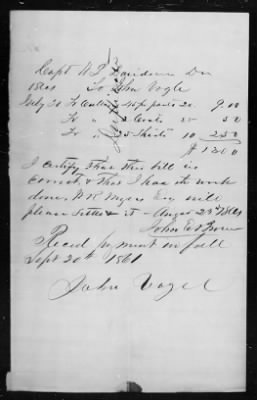 Capt W P Davidson Dr
1861 To John Vogle
July 20 For Cutting 45 pr pants 20 9.00
For " 2 Coats 25 50
For " 25 Shirts 10 2 50
$ 12 00
I certify that this bill is
correct & that I has the work
done. W R Myers Esq will
please settle it Augst 23d 1861
John
Recd payment in full
Sept 20th 1861
John Vogle